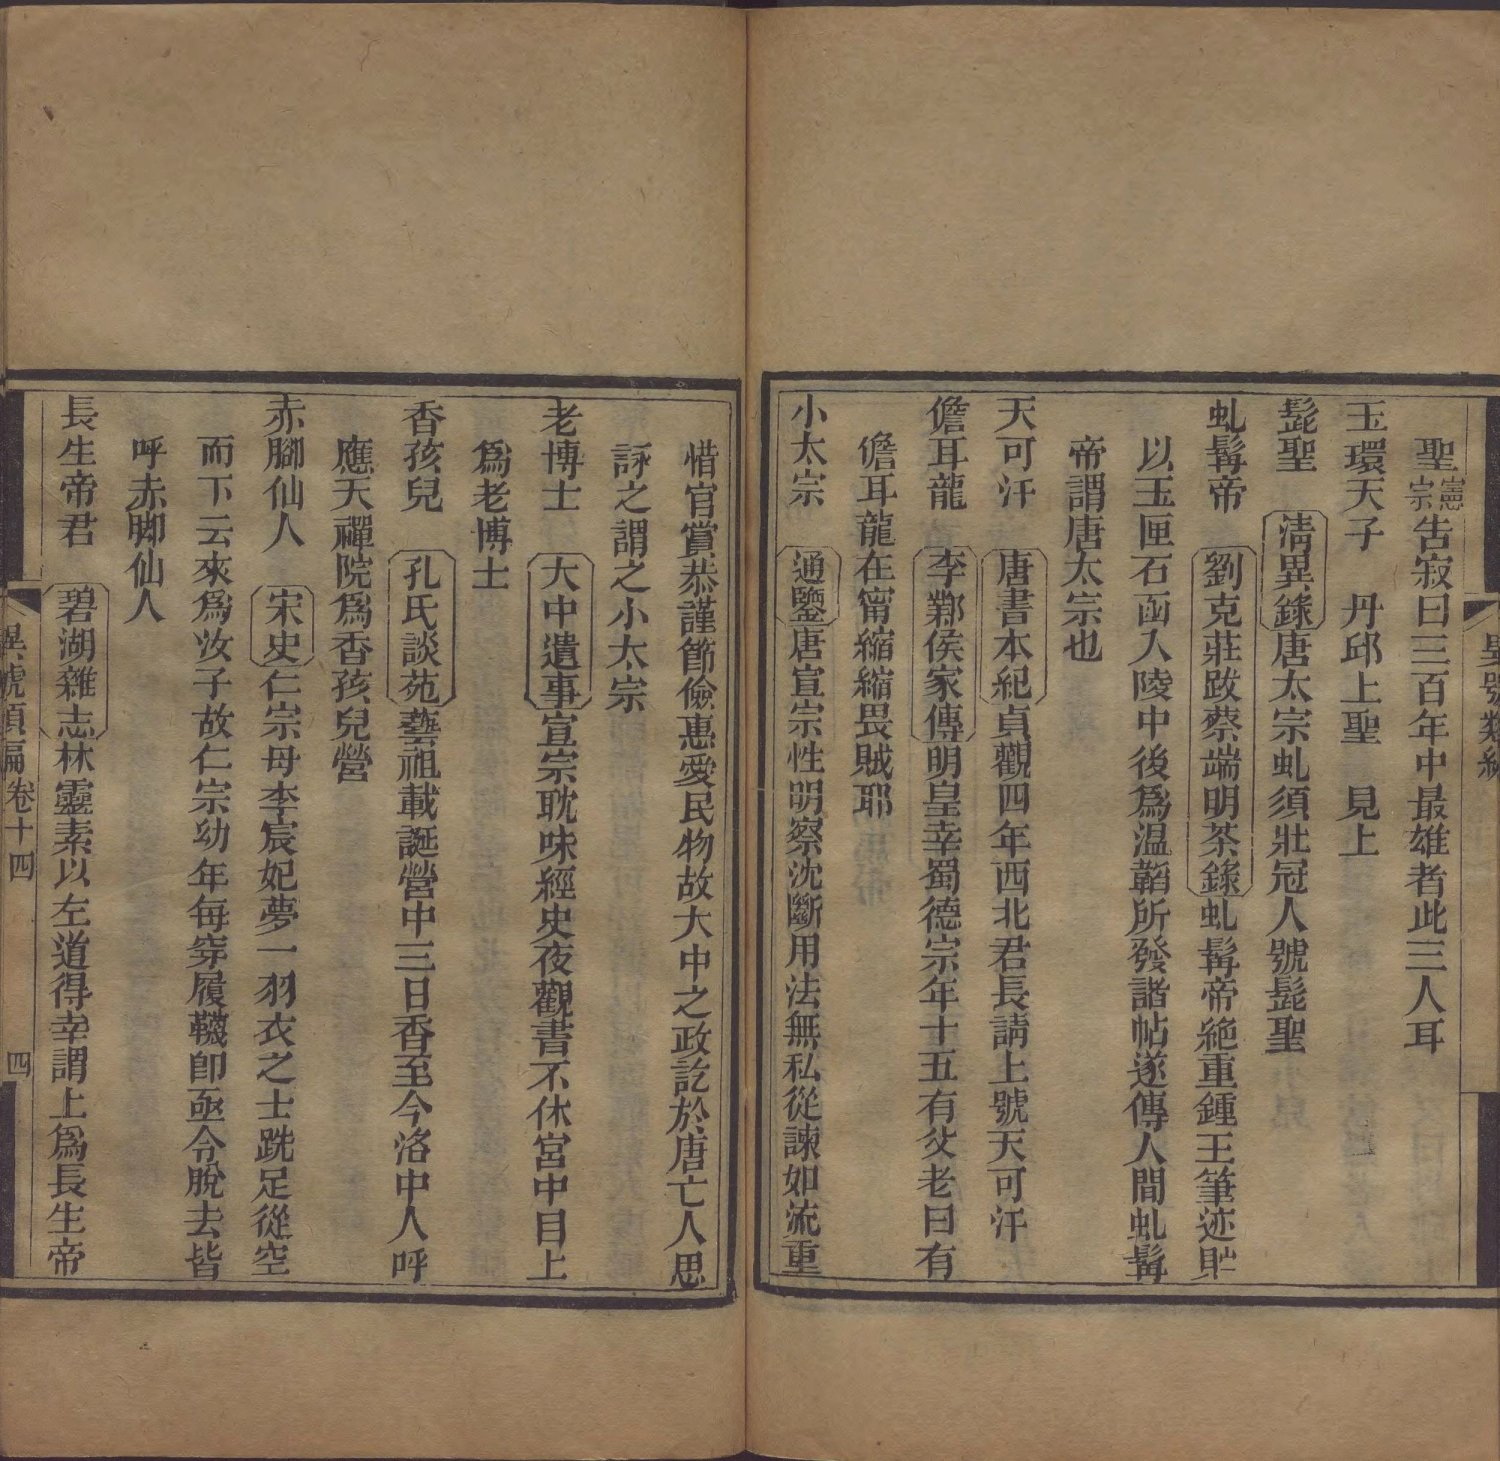 異號類編
聖憲宗告寂曰三百年中最雄者此三人耳
玉環天子　丹邱上聖　見上
髭聖　清異錄唐太宗虬須壯冠人號髭聖
虬髯帝　劉克莊跋蔡端明茶錄虬髯帝絶重鍾王筆迹
以玉匣石函入陵中後爲温韜所發諸帖遂傳人間虬髯
帝謂唐太宗也
天可汗　唐書本紀貞觀四年西北君長請上號天可汗
儋耳龍　李鄴侯家傳明皇幸蜀德宗年十五有父老曰有
儋耳龍在甯縮縮畏賊耶
小太宗　通鑒唐宣宗性明察沈斷用法無私從諫如流重
惜官賞恭謹節儉惠愛民物故大中之政訖於唐亡人思
詠之謂之小太宗
老博士　大中遺事宣宗耽味經史夜觀書不休宮中目上
爲老博士
香孩兒　孔氏談苑藝祖載誕營中三日香至今洛中人呼
應天禪院爲香孩兒營
赤腳仙人　宋史仁宗母李宸妃夢一羽衣之士跣足從空
而下云來爲汝子故仁宗幼年每穿履韈卽亟令脫去皆
呼赤脚仙人
長生帝君　碧湖雜志林靈素以左道得幸謂上爲長生帝
異號類編卷十四　四